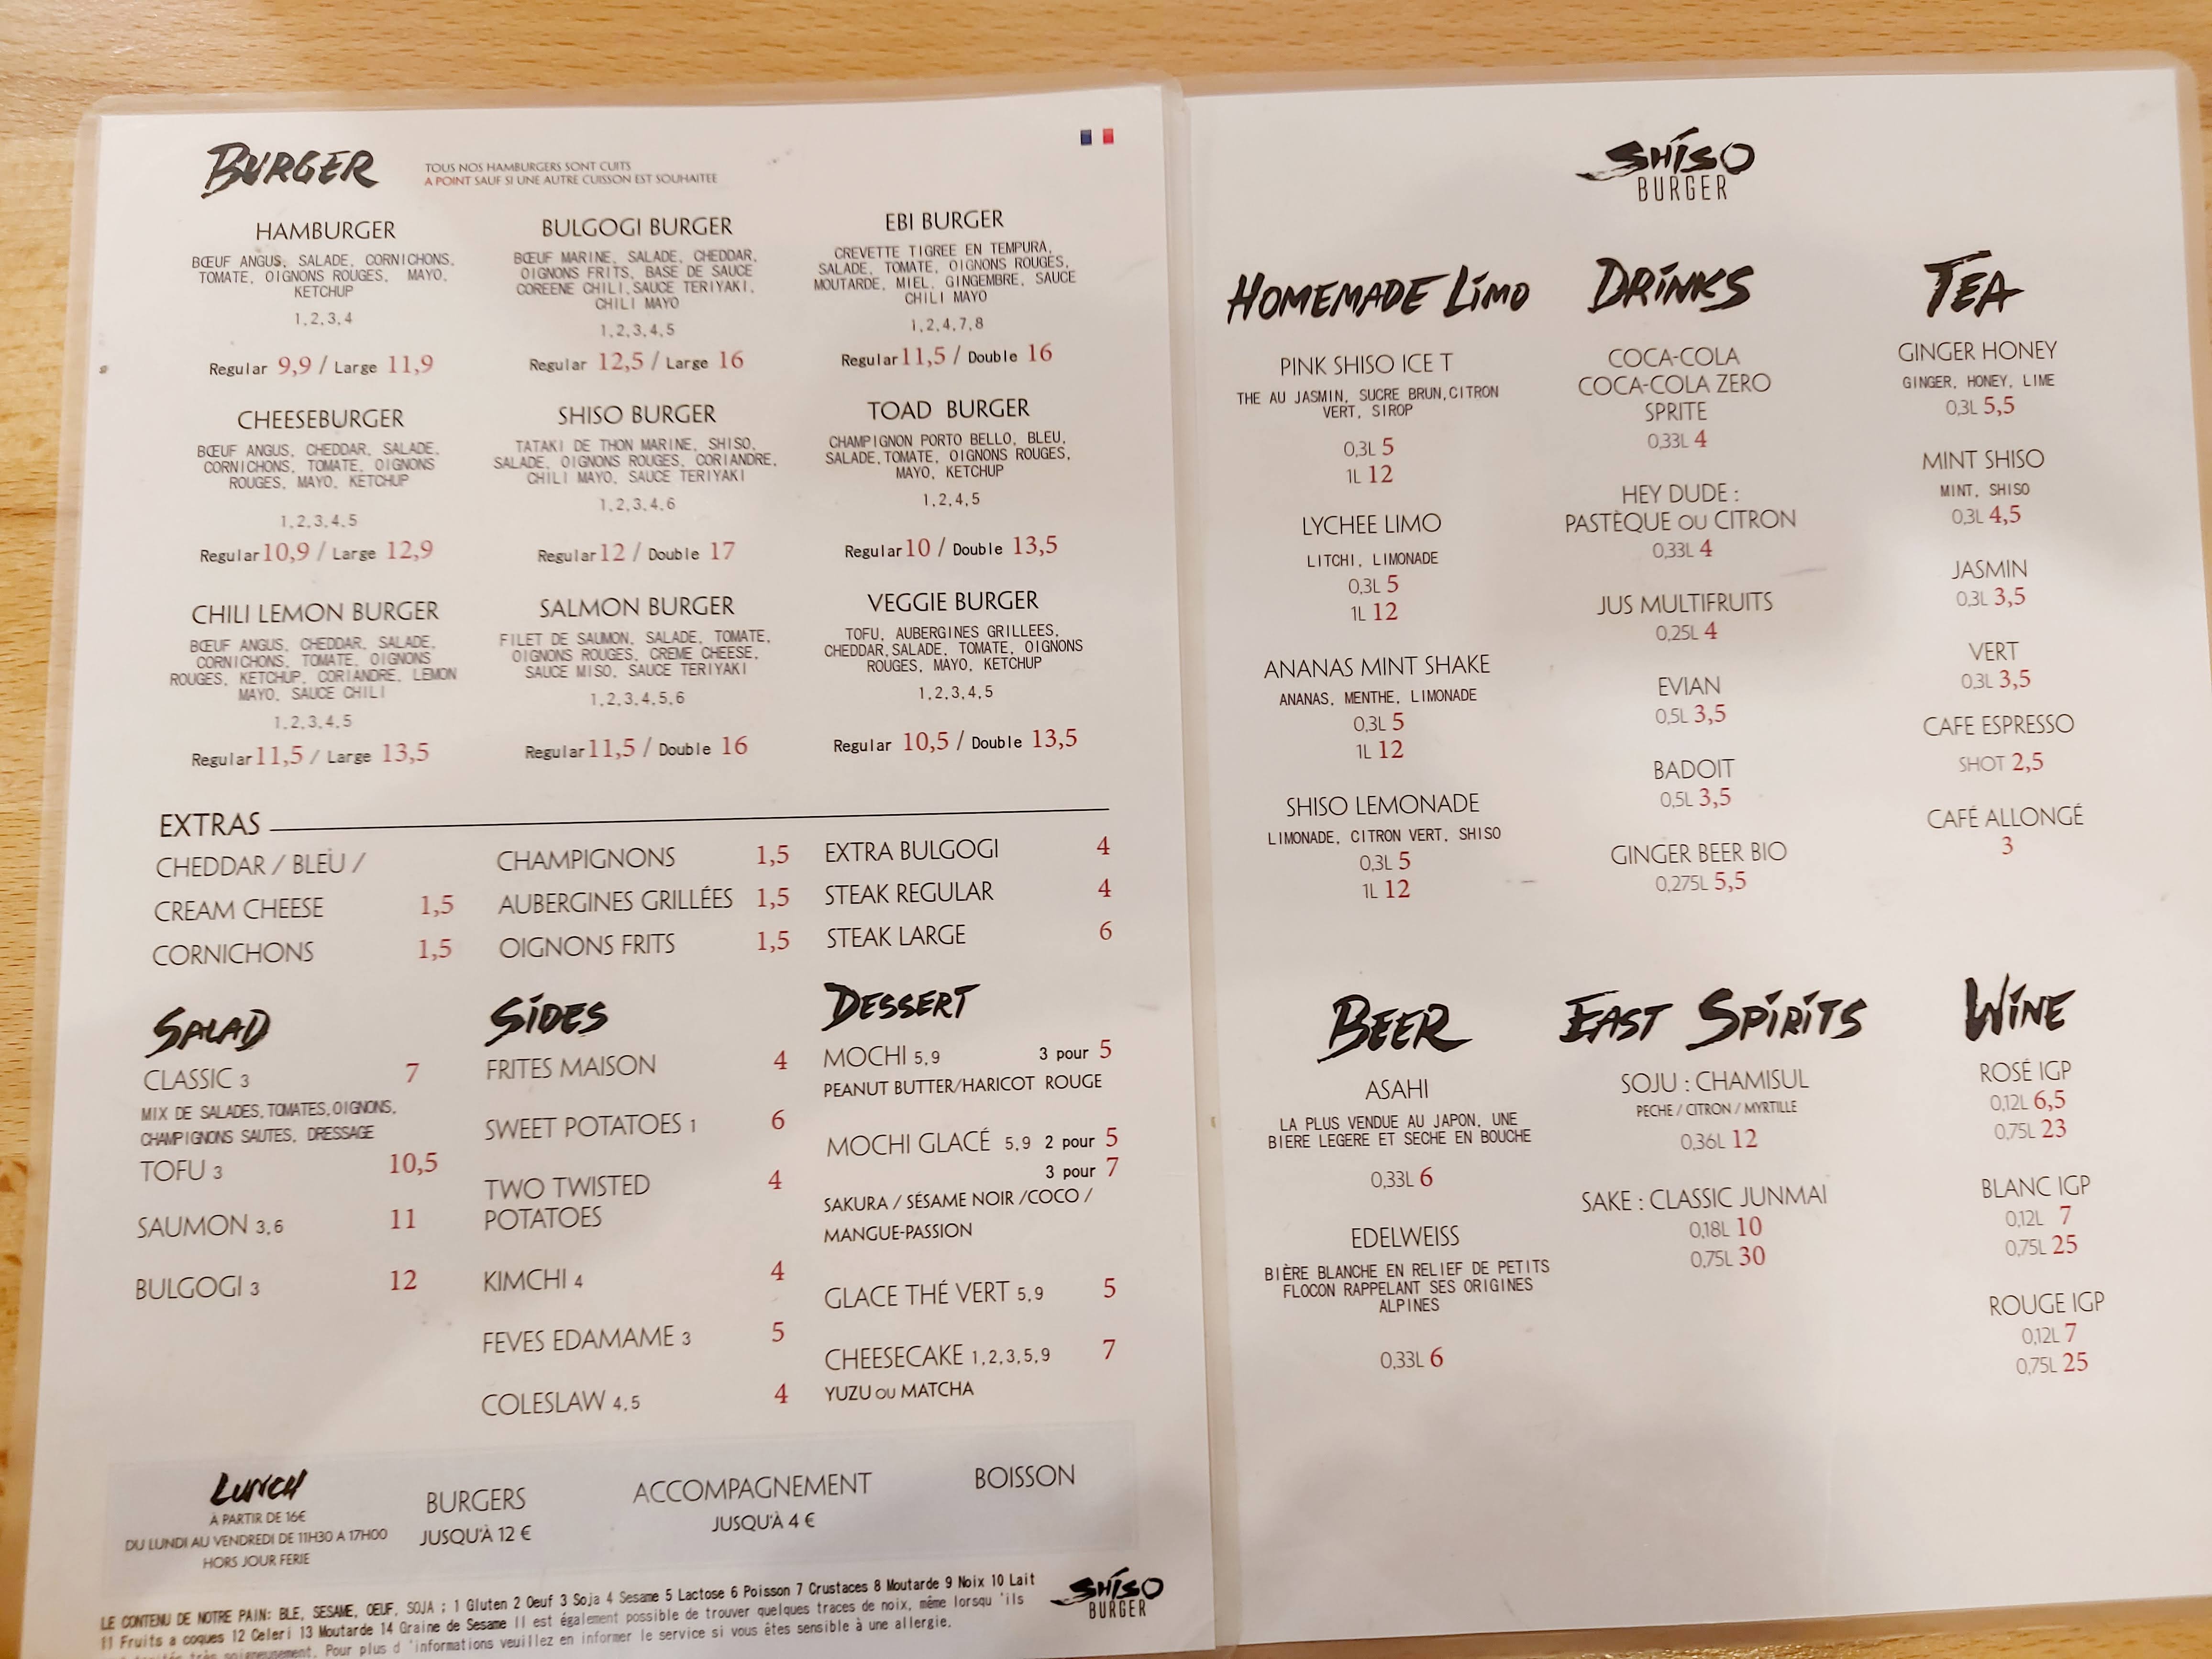 BURGER
TOUS NOS HAMBURGERS SONT CUITS
A POINT SAUF SI UNE AUTRE CUISSON EST SOUHAITEE
HAMBURGER
BŒUF ANGUS, SALADE, CORNICHONS,
TOMATE, OIGNONS ROUGES, MAYO,
KETCHUP
1,2,3,4
Regular 9,9 / Large 11,9
BULGOGI BURGER
BŒUF MARINE, SALADE, CHEDDAR,
OIGNONS FRITS, BASE DE SAUCE
COREENE CHILI,SAUCE TERIYAKI,
CHILI MAYO
1,2,3,4,5
Regular 12,5 / Large 16
EBI BURGER
CREVETTE TIGREE EN TEMPURA,
SALADE, TOMATE, OIGNONS ROUGES,
MOUTARDE, MIEL, GINGEMBRE, SAUCE
CHILI MAYO
1,2,4,7,8
Regular 11,5 / Double 16
CHEESEBURGER
BŒUF ANGUS, CHEDDAR, SALADE,
CORNICHONS, TOMATE, OIGNONS
ROUGES, MAYO, KETCHUP
1,2,3,4,5
Regular 10,9 / Large 12,9
SHISO BURGER
TATAKI DE THON MARINE, SHISO,
SALADE, OIGNONS ROUGES, CORIANDRE,
CHILI MAYO, SAUCE TERIYAKI
1,2,3,4,6
Regular 12 / Double 17
TOAD BURGER
CHAMPIGNON PORTO BELLO, BLEU,
SALADE,TOMATE, OIGNONS ROUGES,
MAYO, KETCHUP
1,2,4,5
Regular 10 / Double 13,5
CHILI LEMON BURGER
BŒUF ANGUS, CHEDDAR, SALADE,
CORNICHONS, TOMATE, OIGNONS
ROUGES, KETCHUP, CORIANDRE, LEMON
MAYO, SAUCE CHILI
1,2,3,4,5
Regular 11,5 / Large 13,5
SALMON BURGER
FILET DE SAUMON, SALADE, TOMATE,
OIGNONS ROUGES, CREME CHEESE,
SAUCE MISO, SAUCE TERIYAKI
1,2,3,4,5,6
Regular 11,5 / Double 16
VEGGIE BURGER
TOFU, AUBERGINES GRILLEES,
CHEDDAR,SALADE, TOMATE, OIGNONS
ROUGES, MAYO, KETCHUP
1,2,3,4,5
Regular 10,5 / Double 13,5
EXTRAS
CHEDDAR / BLEU /
CREAM CHEESE 1,5
CORNICHONS 1,5
CHAMPIGNONS 1,5
AUBERGINES GRILLÉES 1,5
OIGNONS FRITS 1,5
EXTRA BULGOGI 4
STEAK REGULAR 4
STEAK LARGE 6
SALAD
CLASSIC 3 7
MIX DE SALADES,TOMATES,OIGNONS,
CHAMPIGNONS SAUTES, DRESSAGE
TOFU 3 10,5
SAUMON 3,6 11
BULGOGI 3 12
SIDES
FRITES MAISON 4
SWEET POTATOES 1 6
TWO TWISTED 4
POTATOES
KIMCHI 4 4
FEVES EDAMAME 3 5
COLESLAW 4,5 4
DESSERT
MOCHI 5,9 3 pour 5
PEANUT BUTTER/HARICOT ROUGE
MOCHI GLACÉ 5,9 2 pour 5
3 pour 7
SAKURA / SÉSAME NOIR /COCO /
MANGUE-PASSION
GLACE THÉ VERT 5,9 5
CHEESECAKE 1,2,3,5,9 7
YUZU OU MATCHA
LUNCH
À PARTIR DE 16€
DU LUNDI AU VENDREDI DE 11H30 A 17H00
HORS JOUR FERIE
BURGERS
JUSQU'À 12 €
ACCOMPAGNEMENT
JUSQU'À 4 €
BOISSON
LE CONTENU DE NOTRE PAIN: BLE, SESAME, OEUF, SOJA ; 1 Gluten 2 Oeuf 3 Soja 4 Sesame 5 Lactose 6 Poisson 7 Crustaces 8 Moutarde 9 Noix 10 Lait
11 Fruits a coques 12 Celeri 13 Moutarde 14 Graine de Sesame Il est également possible de trouver quelques traces de noix, même lorsqu 'ils
très soigneusement. Pour plus d 'informations veuillez en informer le service si vous êtes sensible à une allergie.
SHISO
BURGER
SHISO
BURGER
HOMEMADE LIMO
PINK SHISO ICE T
THE AU JASMIN, SUCRE BRUN,CITRON
VERT, SIROP
0,3L 5
1L 12
LYCHEE LIMO
LITCHI, LIMONADE
0,3L 5
1L 12
ANANAS MINT SHAKE
ANANAS, MENTHE, LIMONADE
0,3L 5
1L 12
SHISO LEMONADE
LIMONADE, CITRON VERT, SHISO
0,3L 5
1L 12
DRINKS
COCA-COLA
COCA-COLA ZERO
SPRITE
0,33L 4
HEY DUDE :
PASTÈQUE OU CITRON
0,33L 4
JUS MULTIFRUITS
0,25L 4
EVIAN
0,5L 3,5
BADOIT
0,5L 3,5
GINGER BEER BIO
0,275L 5,5
TEA
GINGER HONEY
GINGER, HONEY, LIME
0,3L 5,5
MINT SHISO
MINT, SHISO
0,3L 4,5
JASMIN
0,3L 3,5
VERT
0,3L 3,5
CAFE ESPRESSO
SHOT 2,5
CAFÉ ALLONGÉ
3
BEER
ASAHI
LA PLUS VENDUE AU JAPON, UNE
BIERE LEGERE ET SECHE EN BOUCHE
0,33L 6
EDELWEISS
BIÈRE BLANCHE EN RELIEF DE PETITS
FLOCON RAPPELANT SES ORIGINES
ALPINES
0,33L 6
EAST SPIRITS
SOJU : CHAMISUL
PECHE / CITRON / MYRTILLE
0,36L 12
SAKE : CLASSIC JUNMAI
0,18L 10
0,75L 30
WINE
ROSÉ IGP
0,12L 6,5
0,75L 23
BLANC IGP
0,12L 7
0,75L 25
ROUGE IGP
0,12L 7
0,75L 25